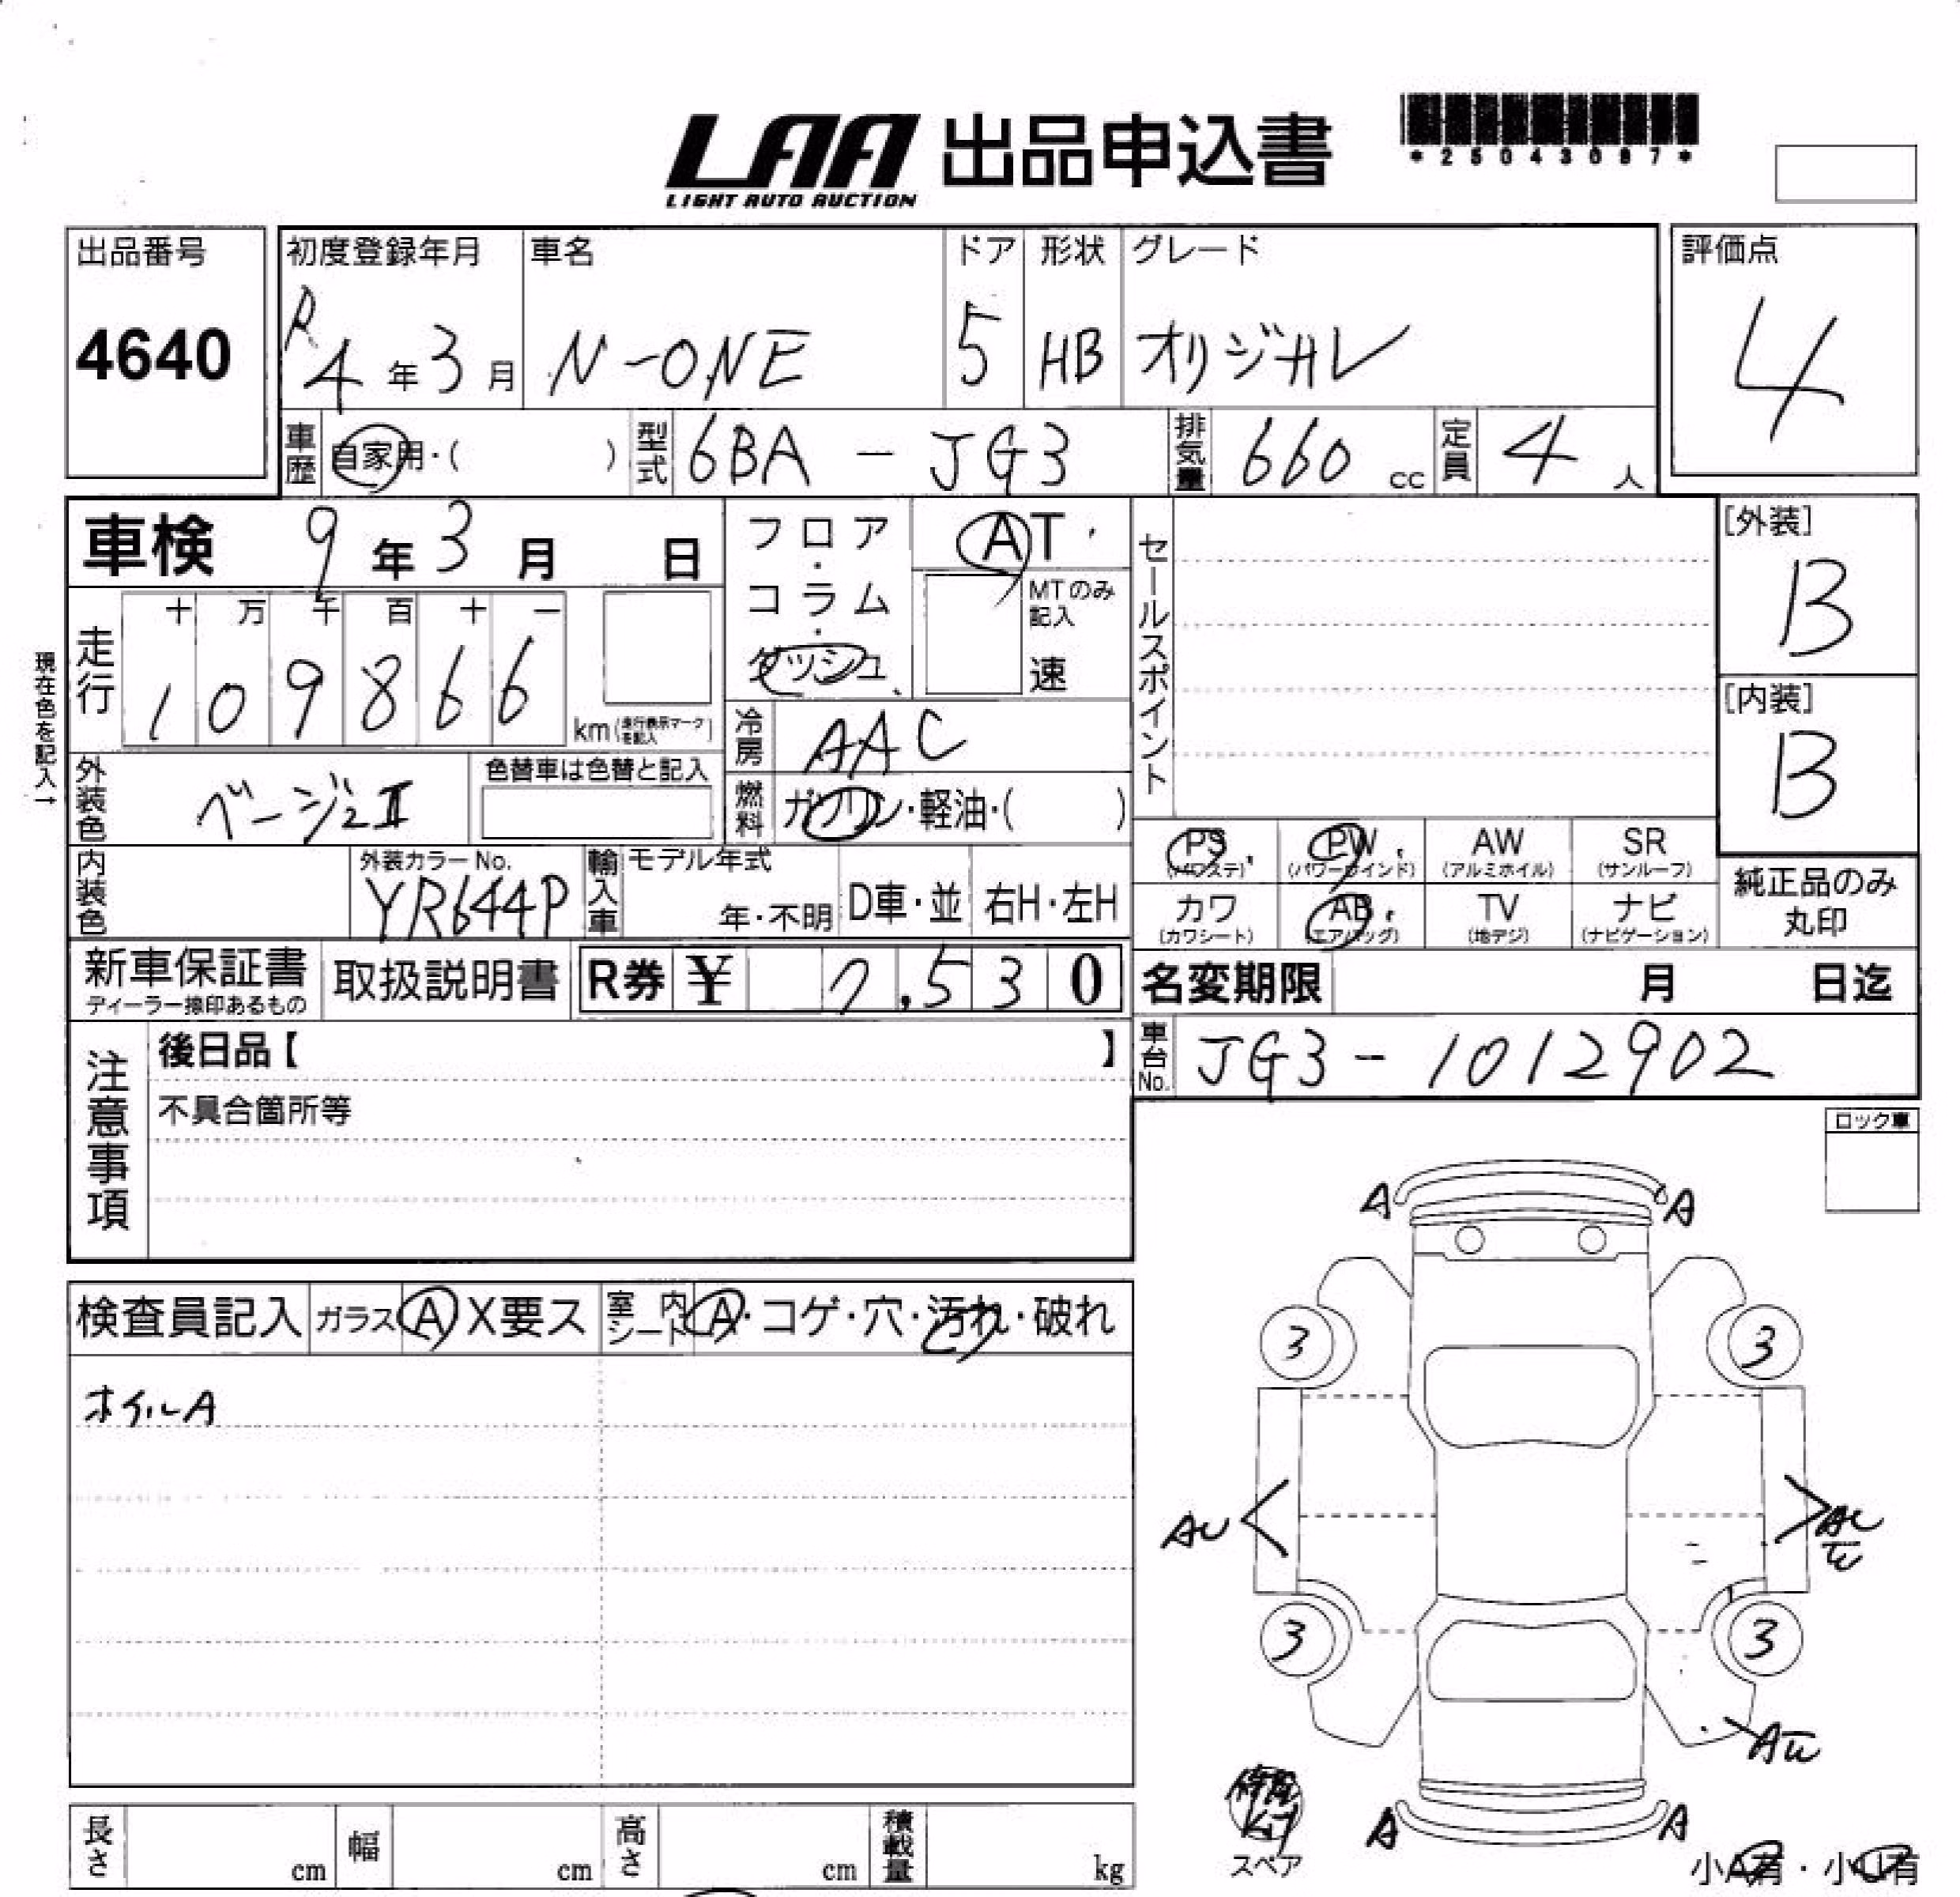 LAA 出品申込書
LIGHT AUTO AUCTION
*25043097*
出品番号
4640
初度登録年月
R4年3月
車名
N-ONE
ドア
5
形状
HB
グレード
オリジナル
評価点
4
車歴
自家用・( )
型式
6BA - JG3
排気量
660 cc
定員
4 人
車検 9年3月 日
フロア・コラム・ダッシュ
AT・
MTのみ記入
速
セールスポイント
[外装]
B
[内装]
B
現在色を記入→
走行
十 万 千 百 十 一
1 0 9 8 6 6
km(走行表示マークを記入)
冷房
AAC
外装色
ベージュ2Ⅱ
色替車は色替と記入
燃料
ガソリン・軽油・( )
PS (パワステ)
PW (パワーウインド)
AW (アルミホイル)
SR (サンルーフ)
カワ (カワシート)
AB (エアバッグ)
TV (地デジ)
ナビ (ナビゲーション)
純正品のみ
丸印
内装色
外装カラーNo.
YR644P
輸入車
モデル年式
年・不明
D車・並
右H・左H
新車保証書
ディーラー捺印あるもの
取扱説明書
R券 ¥ 7,530
名変期限 月 日迄
車台No.
JG3-1012902
注意事項
後日品【 】
不具合箇所等
ロック車
検査員記入
ガラス A X要ス
室内シート A・コゲ・穴・汚れ・破れ
ホイルA
A A
3 3
AU
3 3
A A
修理
Kit
スペア
小A有・小U有
長さ cm
幅 cm
高さ cm
積載量 kg